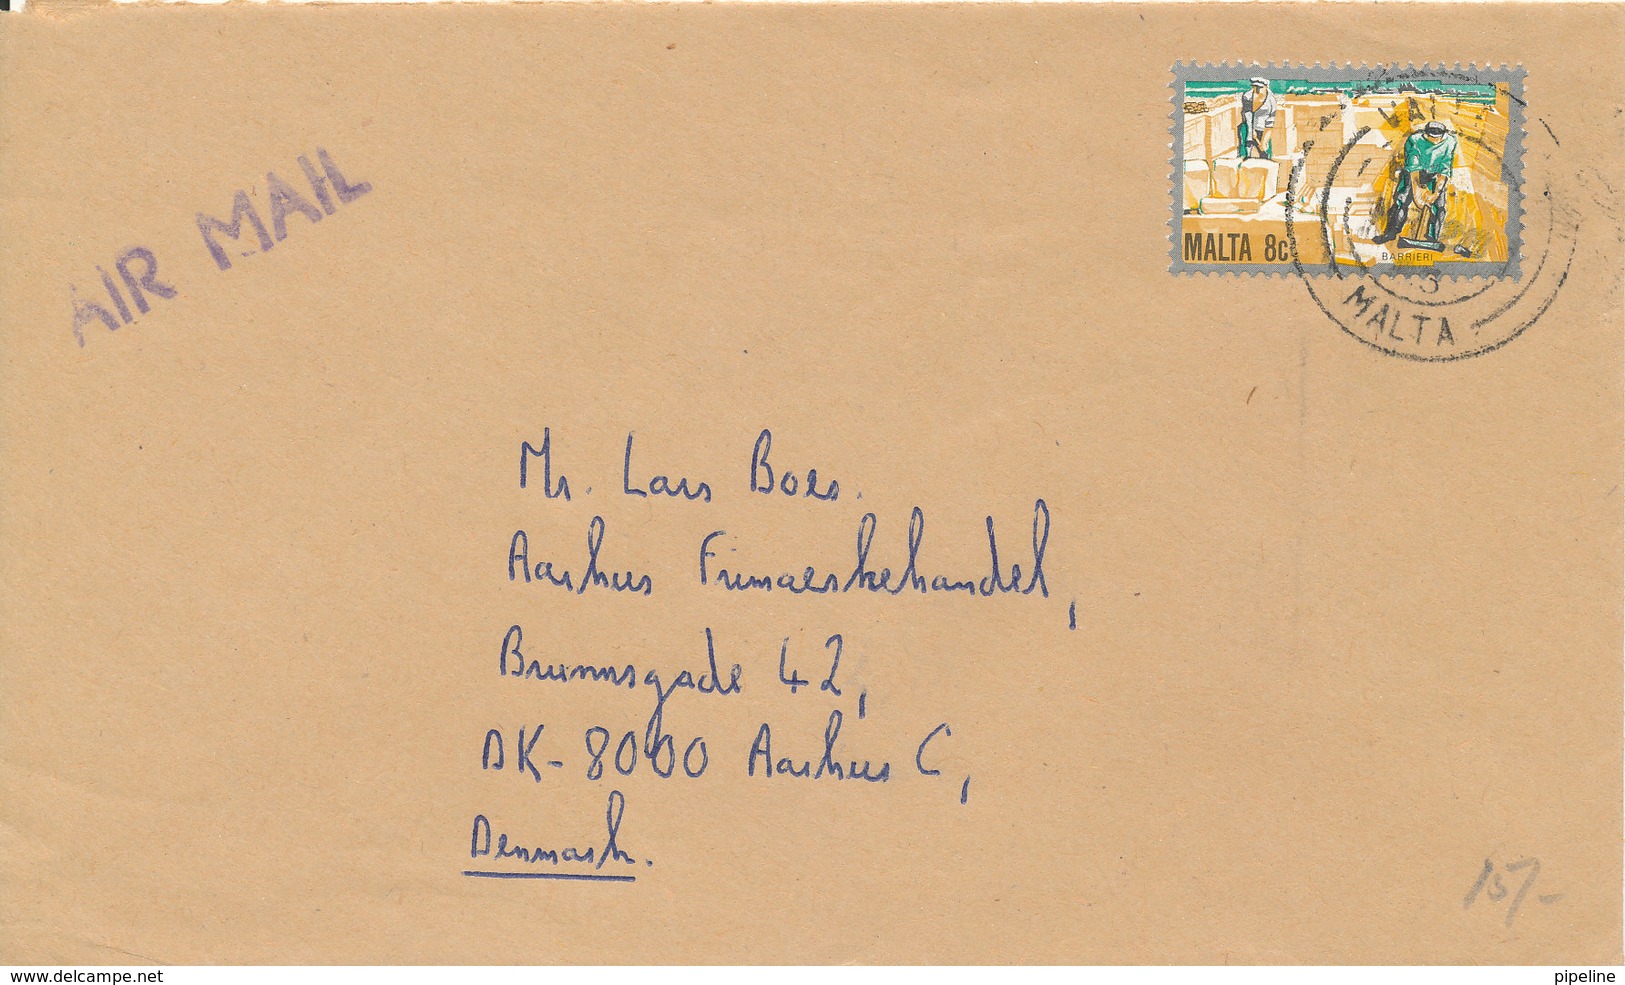 AIR MAIL
MALTA 8c
BARRIERI
MALTA
Mr. Lars Boes.
Aarhus Frimaerkehandel,
Brunnsgade 42,
DK-8000 Aarhus C,
Denmark.
15/-
www.delcampe.net
pipeline